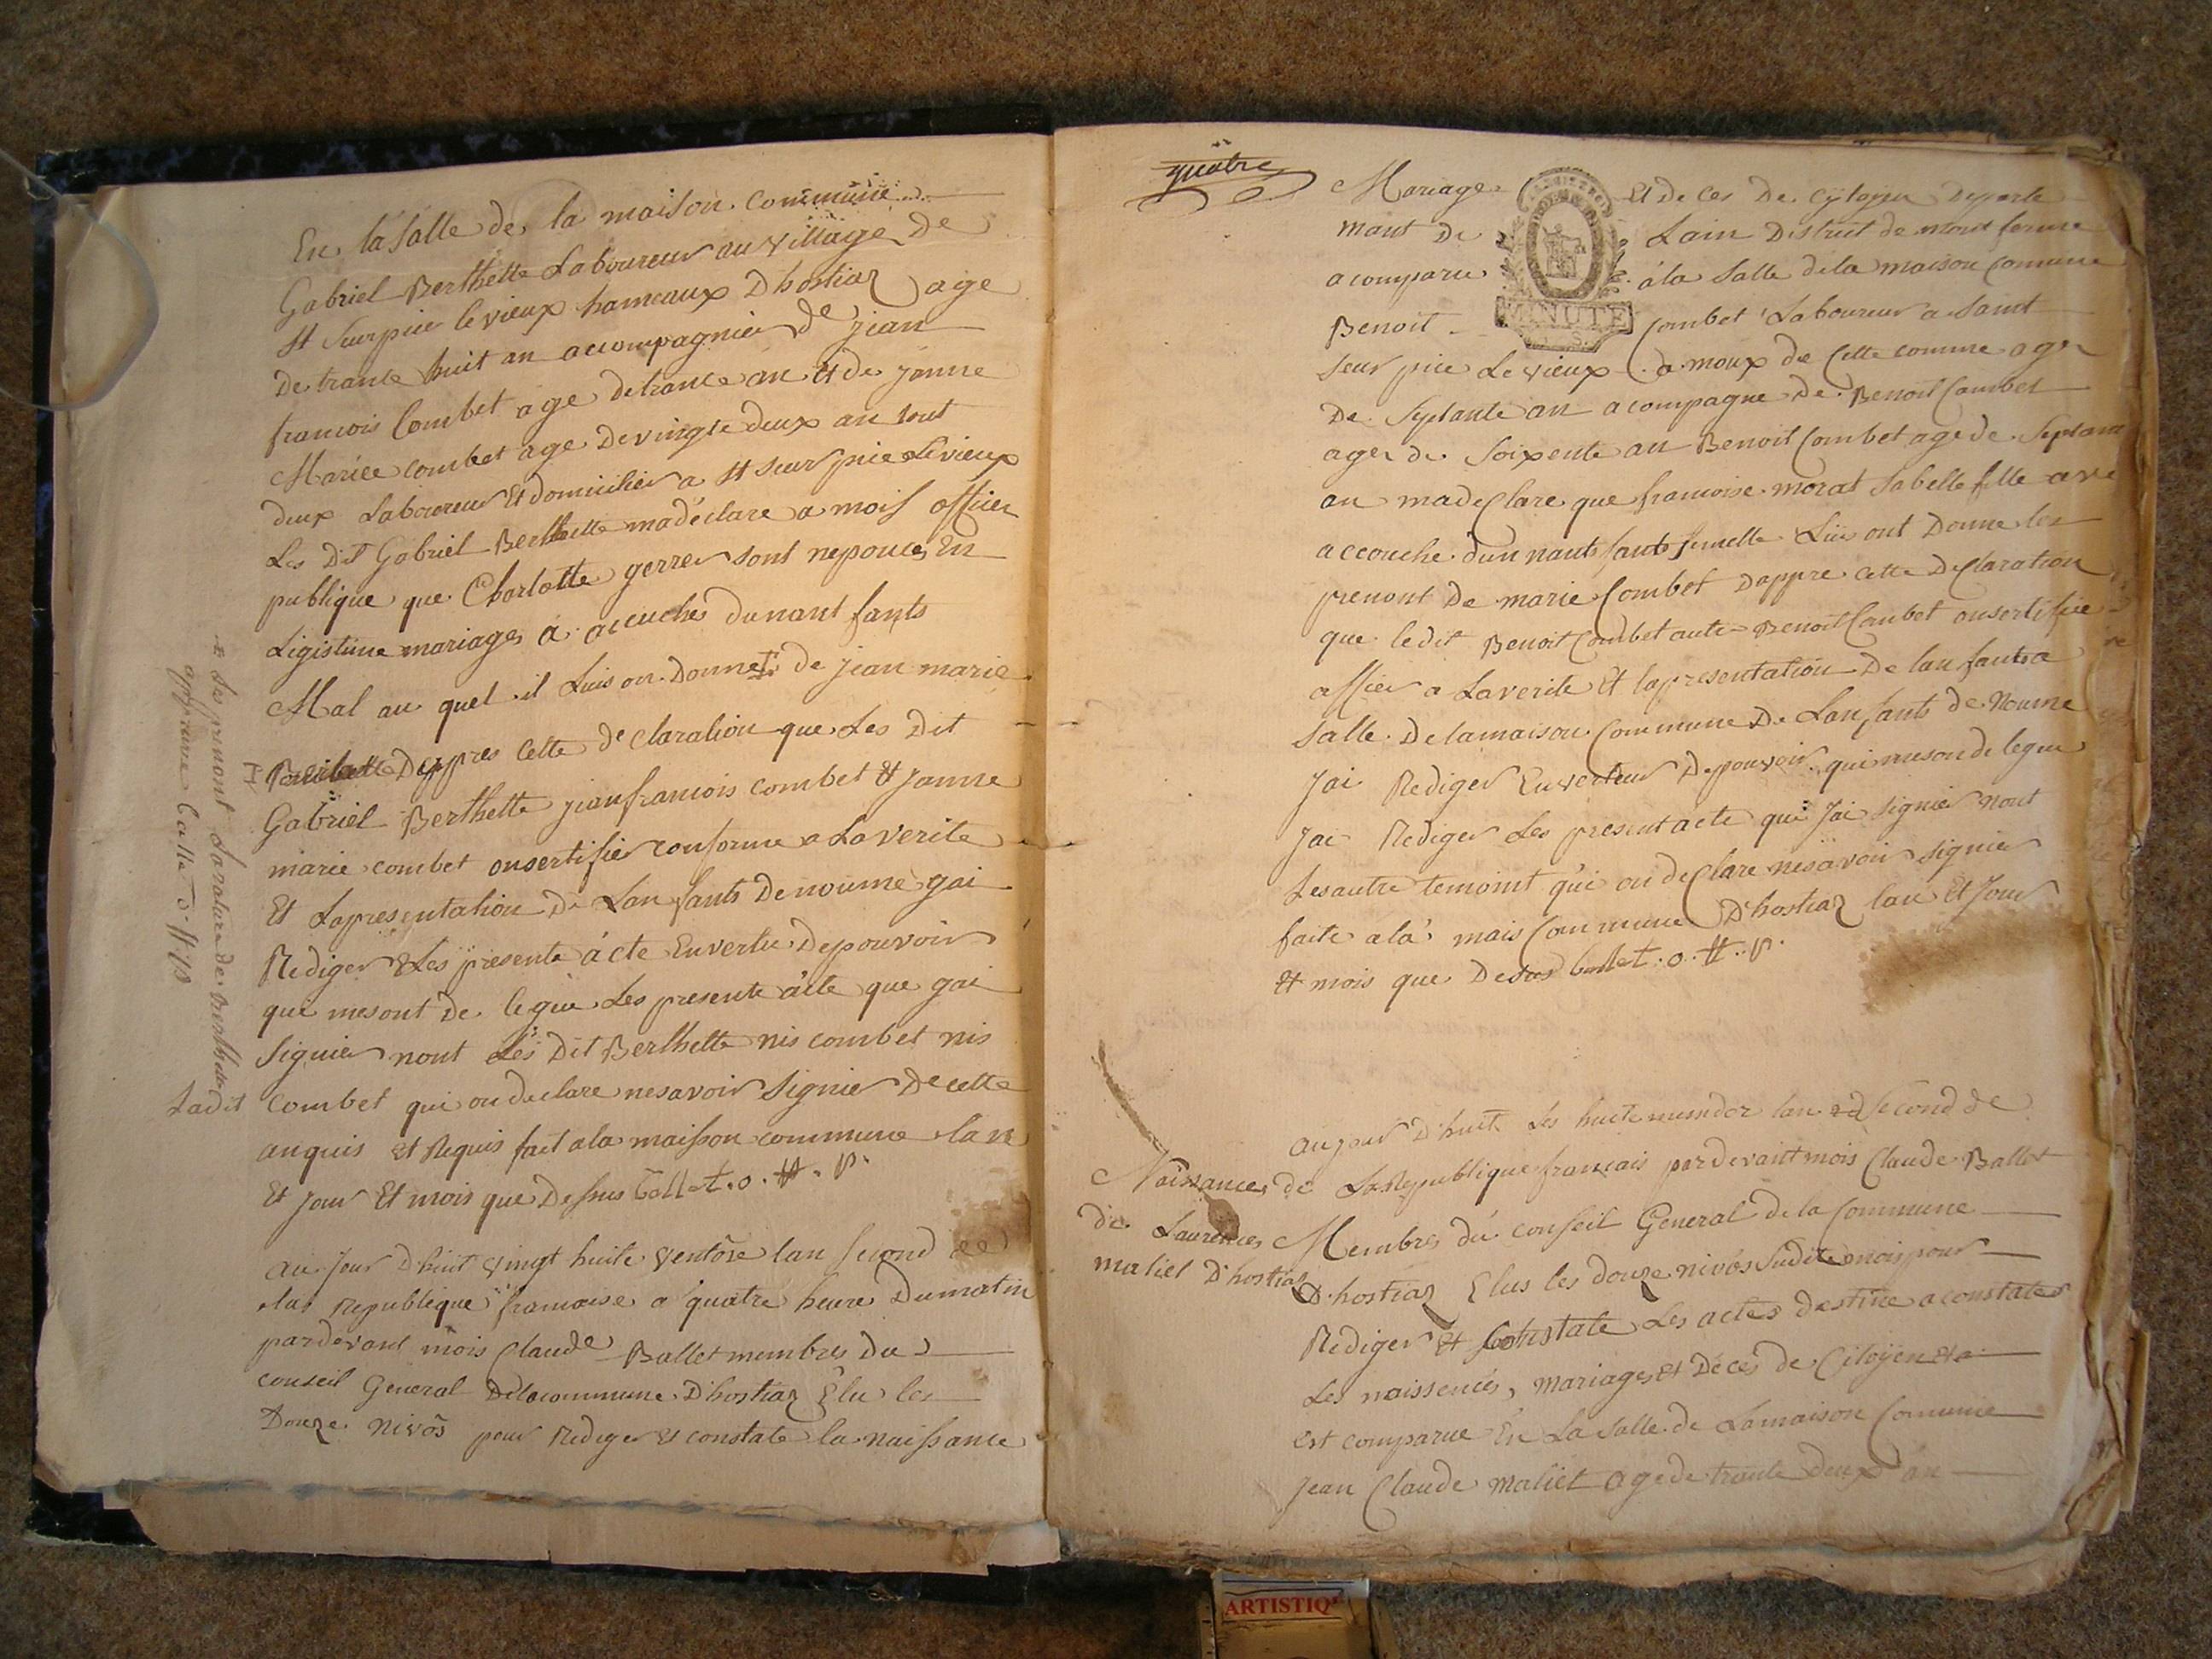 En la salle de la maison commune
Gabriel Berthette Laboureur au village de
st Surpice le vieux hameaux D'hostiaz age
De trante huit an accompagnier de jean
francois Combet age de trante an Et de janne
Mariee combet age De vingte deux an tout
deux Laboureur Et domicilier a st seurpice Le vieux
Les Dit Gabriel Berthette ma déclare a mois officier
publique que Charlotte gerrer sont nepouces En
Ligistime mariages a accuches dunant fants
Mal au quel il Luis on Donnet de jean marie
Dappres cette declaration que Les Dit
Gabriel Berthette jeanfrancois combet Et Janne
marie combet onsertifier conforme a La verite
Et Lapresentation De Lan fants De noumé gai
Rediger Les presente ácte En vertu De pouvoir
que mesont De legue Les presente ácte que gai
Signier nont Les Dit Berthette nis combet nis
Ladit combet qui on declare nesavoir Signier De cette
anquis et Requis fait a la maisson commune lan
Et jour Et mois que Dessus Ballet. o. ff. p.
au jour D'huit vingt huite ventôse lan second de
las Republique francaise a quatre heure Dumatin
pardevant mois Claude Ballet membres Du
conseil General Delacommune D'hostiaz Élu les
Douze nivôs pour Rediger et constate la naissance
Les prinont Larature de Berthette
approuve Ballet o. ff. p
quatre
Mariage Et de ces De Cytoyen Departe
mant De Lain District de mont ferme
a comparu á la Salle dela maison Comune
Benoit Combet Laboureur a saint
MINUTE
Seur pice Le vieux a moux de Cette comune ager
De Septante an acompagne de Benoit Combet
ager de Soixente an Benoit Combet age de Septante
an ma declare que francoise morat Sabelle fille ave
accouche d'un nant fants femelle Luis ont Donne les
prenont De marie Combet Dappre cette Declaration
que ledit Benoit Combet aute Benoit Combet onsertifie
affier a La verite Et lapresentation De lan fants a
Salle De lamaison Commune De Lan fants de Noume
jai Rediger En verteur De pouvoir qui me son de legue
jai Rediger Les present acte que Jai Signier nont
Les autre temoint qui on declare nesavoir Signier
faite a la mais Commune D'hostiaz lan Et Jour
Et mois que Desus Ballet. o. ff. p.
Naissances
de Laurences
maliet D'hostiaz
au jour D'huit Les huite lan second de
de La Republique francais pardevant mois Claude Ballet
Membres du conseil General de la Commune
D'hostiaz Elus les douze nivos Sudite mois pour
Rediger Et Constate Les actes destine a constater
Les naissences, mariages Et Déces de Citoyen Et a
Est comparue En La Salle de Lamaison Comune
Jean Claude maliet age de trante deux an
ARTISTIQ